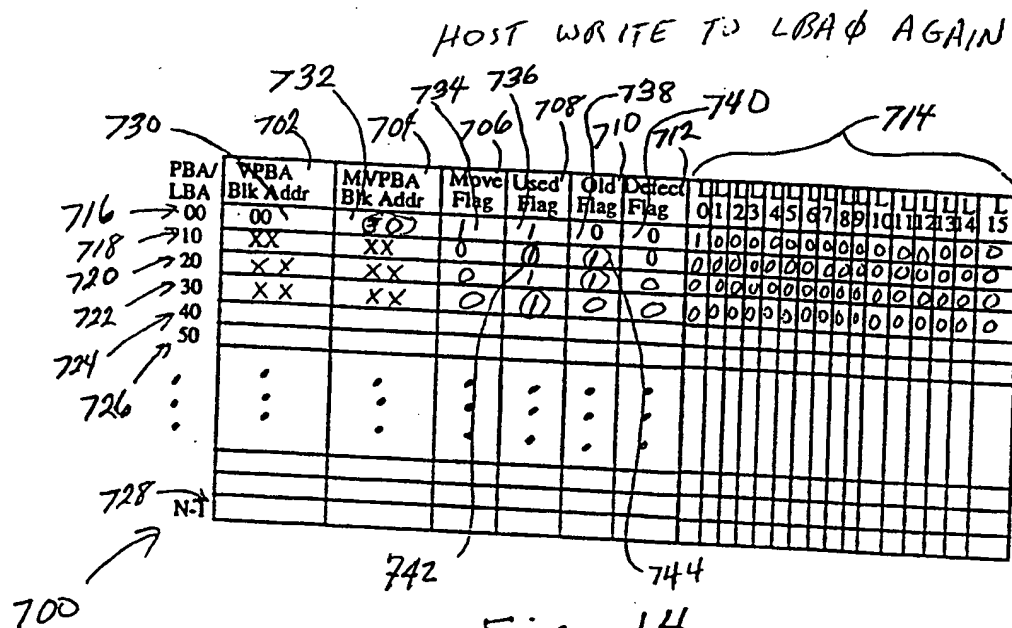 HOST WRITE TO LBAØ AGAIN
732 734 736 738 740
730 702 704 706 708 710 712 714
PBA/ LBA VPBA Blk Addr MVPBA Blk Addr Move Flag Used Flag Old Flag Defect Flag L0 L1 L2 L3 L4 L5 L6 L7 L8 L9 L10 L11 L12 L13 L14 L15
716 00 00 30 1 1 0 0 1 0 0 0 0 0 0 0 0 0 0 0 0 0 0 0
718 10 XX XX 0 0 1 0 0 0 0 0 0 0 0 0 0 0 0 0 0 0 0 0
720 20 XX XX 0 1 1 0 0 0 0 0 0 0 0 0 0 0 0 0 0 0 0 0
722 30 XX XX 0 1 0 0 0 0 0 0 0 0 0 0 0 0 0 0 0 0 0 0
724 40
726 50
728 N-1
742 744
700
Fig. 14